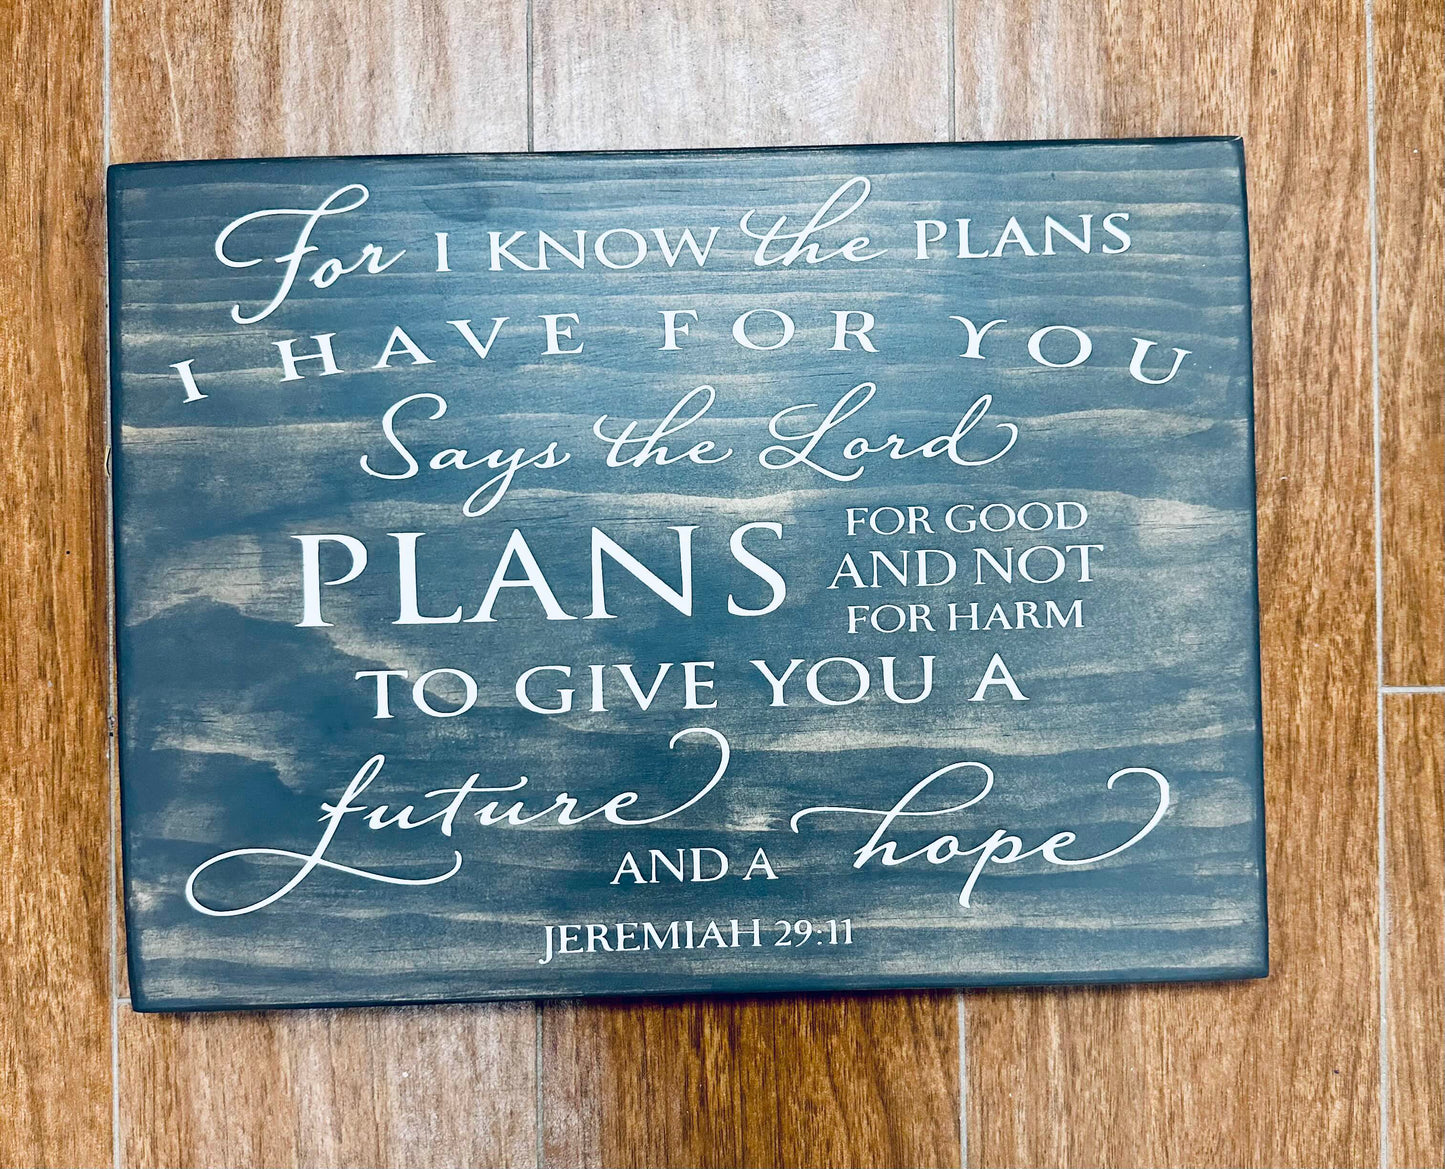 For I KNOW the PLANS
I HAVE FOR YOU
Says the Lord
PLANS FOR GOOD
AND NOT
FOR HARM
TO GIVE YOU A
future
AND A hope
JEREMIAH 29:11